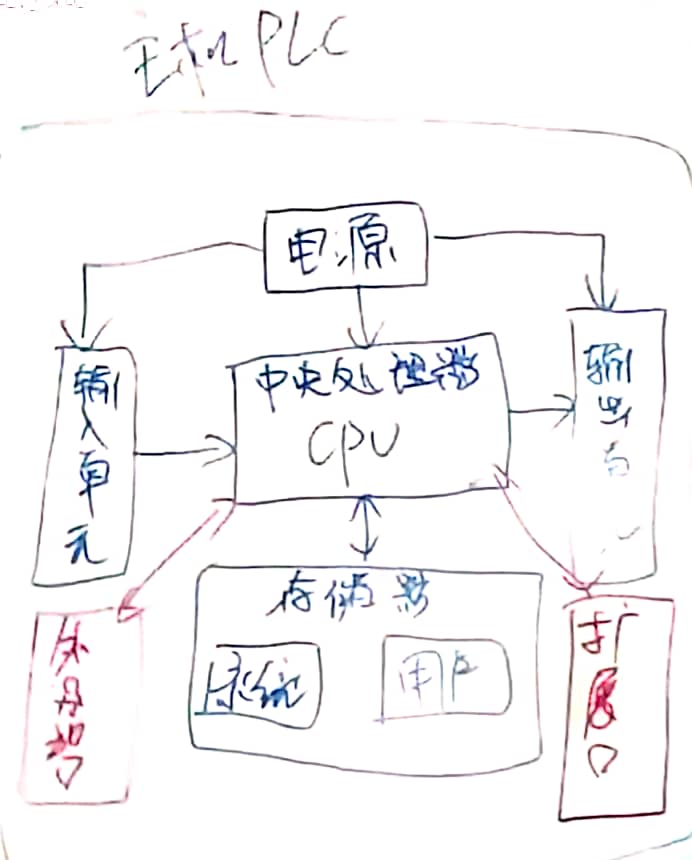 主机PLC
电源
输入单元
中央处理器
CPU
输出
存储器
系统
用户
外
扩展口